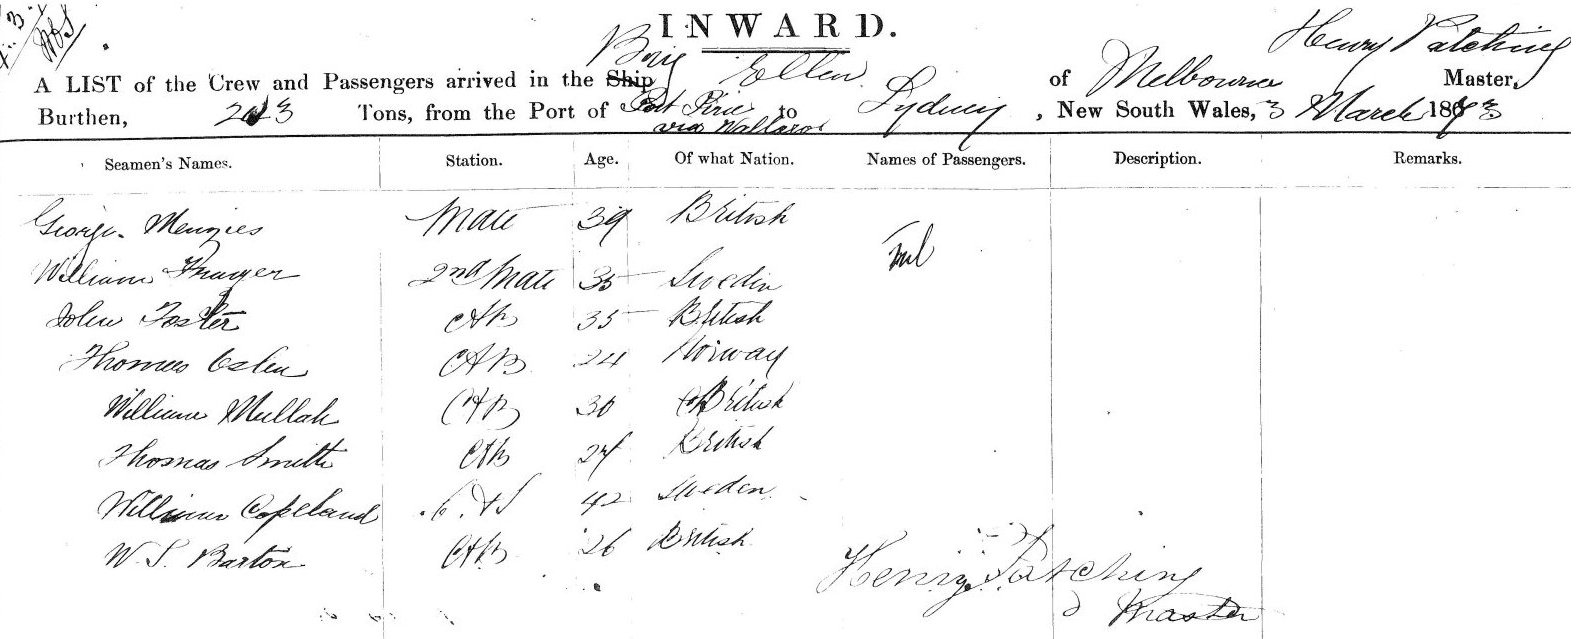 INWARD.
A LIST of the Crew and Passengers arrived in the Ship Brig Ellen of Melbourne Henry Patching Master,
Burthen, 203 Tons, from the Port of Port Pirie via Wallaroo to Sydney, New South Wales, 3 March 1873
Seamen's Names. Station. Age. Of what Nation. Names of Passengers. Description. Remarks.
George Menzies Mate 39 British
William 2nd Mate 35 Sweden
John Foster AB 35 British
Thomas Oslen AB 24 Norway
William Mullah AB 30 British
Thomas Smith AB British
William Copeland 42 Sweden
W. S. Barton AB 26 British
Henry Patching
Master